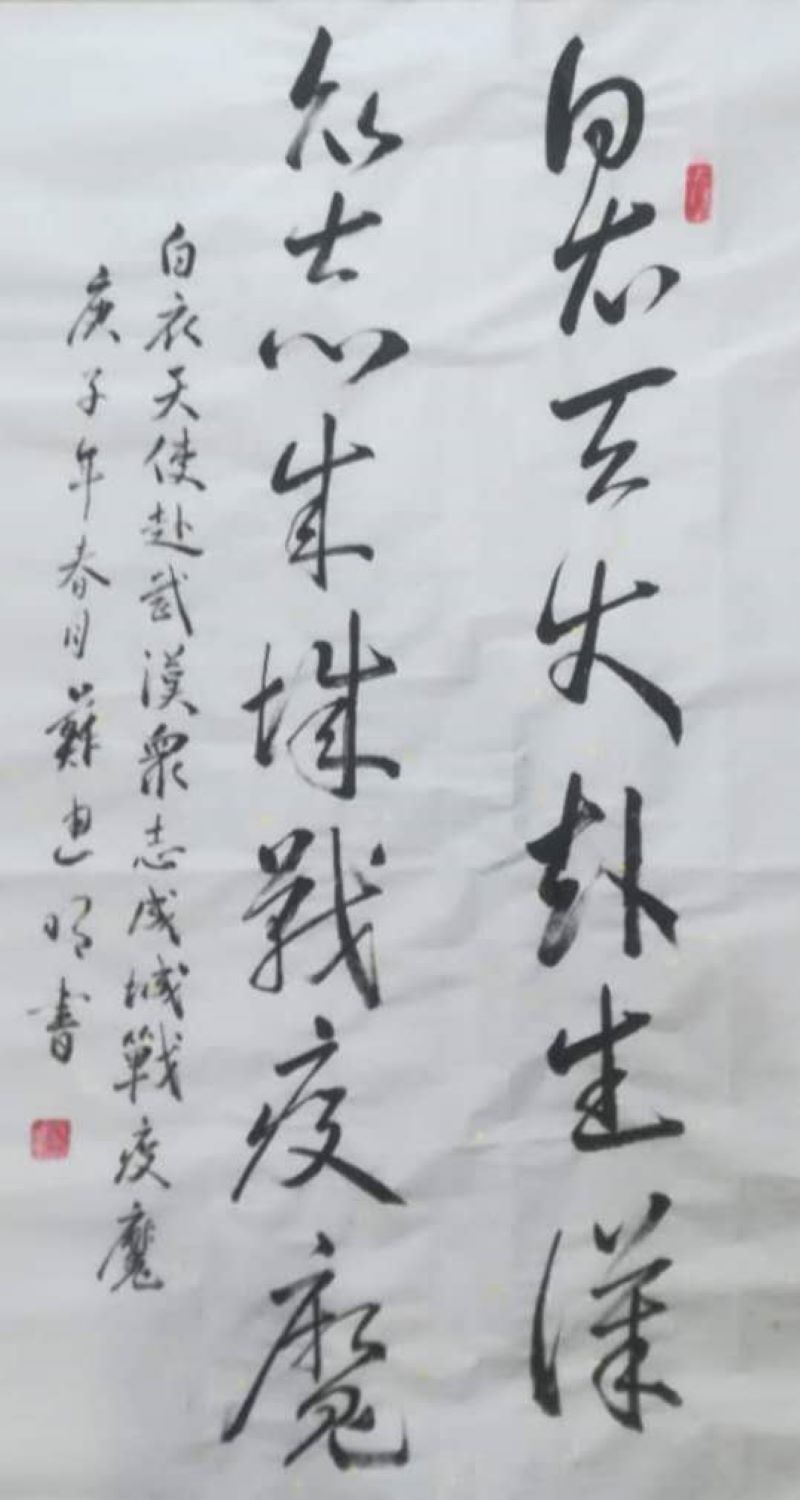 白衣天使赴武漢
众志成城戰疫魔
白衣天使赴武漢眾志成城戰疫魔
庚子年春月蘇建明書